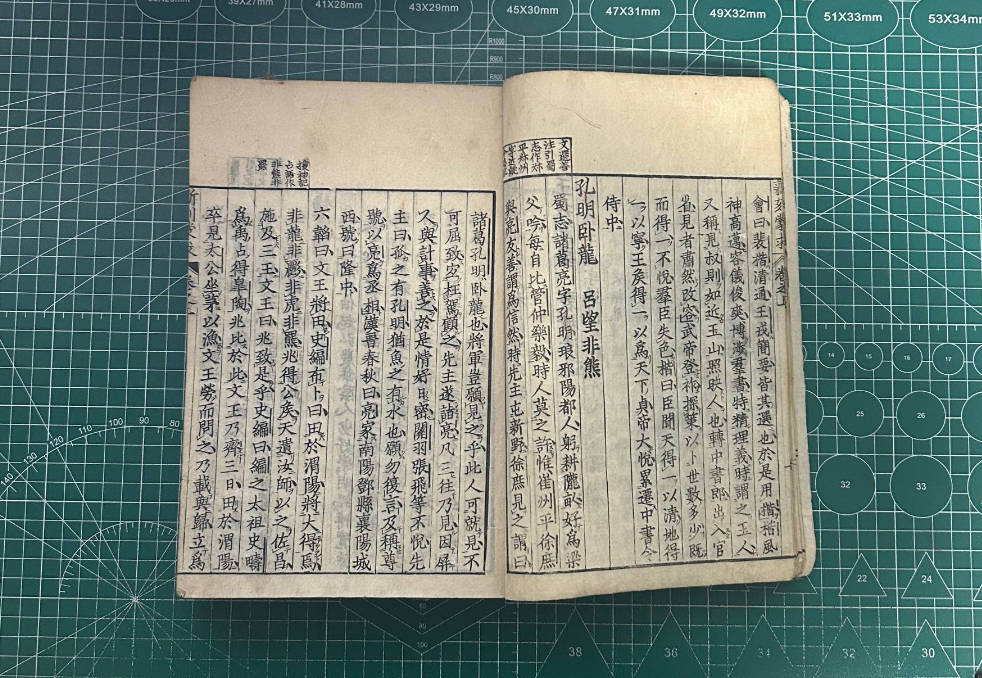 39X27mm
41X28mm
43X29mm
45X30mm
47X31mm
49X32mm
51X33mm
53X34mm
R1000
R900
R800
文選善
注引蜀
志作
會曰裴揩清通王戎簡要皆其選也於是用揩揩風
神高邁容儀俊爽博渉羣書特精理義時謂之玉人
又稱見叔則如近玉山照映人也轉中書郎出入官
省見者肅然改容武帝登祚探策以卜世數多少既
而得一不悅羣臣失色楷曰臣聞天得一以清地得
一以寧王矦得一以爲天下貞帝大悅累遷中書令
侍中
孔明臥龍 呂望非熊
蜀志諸葛亮字孔明琅邪陽都人躬耕隴畝好爲梁
父吟每自比管仲樂毅時人莫之許惟崔州平徐庶
與亮友善謂爲信然時先主屯新野徐庶見之謂曰
搜神記
占師作
非熊非
羆
諸葛孔明臥龍也將軍豈願見之乎此人可就見不
可屈致宐枉駕顧之先主遂詣亮凡三往乃見因屏
又與計事善之於是情好日密關羽張飛等不悅先
主曰孤之有孔明猶魚之有水也願勿復言及稱尊
號以亮爲丞相漢晉春秋曰亮家南陽鄧縣襄陽城
西號曰隆中
六韜曰文王將田史編布卜曰田於渭陽將大得焉
非龍非彲非虎非羆兆得公矦天遺汝師以之佐昌
施及三王文王曰兆致是乎史編曰編之太祖史疇
爲禹占得皐陶兆比於此文王乃齋三日田於渭陽
卒見太公坐茅以漁文王勞而問之乃載與歸立爲
14
15
16
17
25
26
32
33
22
24
38
36
34
32
30
140
130
120
110
100
90
80